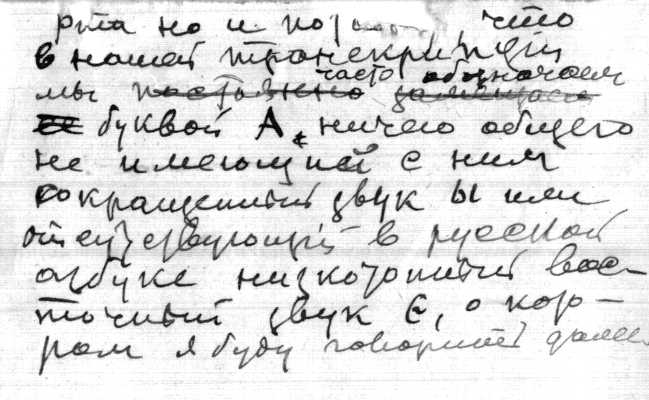 рта но и по что
в нашей транскрипции
мы постоянно часто заменяем обозначаем
ее буквой А, ничего общего
не имеющей с ним
сокращенный звук ы или
отсутствующий в русской
азбуке низкотонный вос-
точный звук Є, о кото-
ром я буду говорить далее